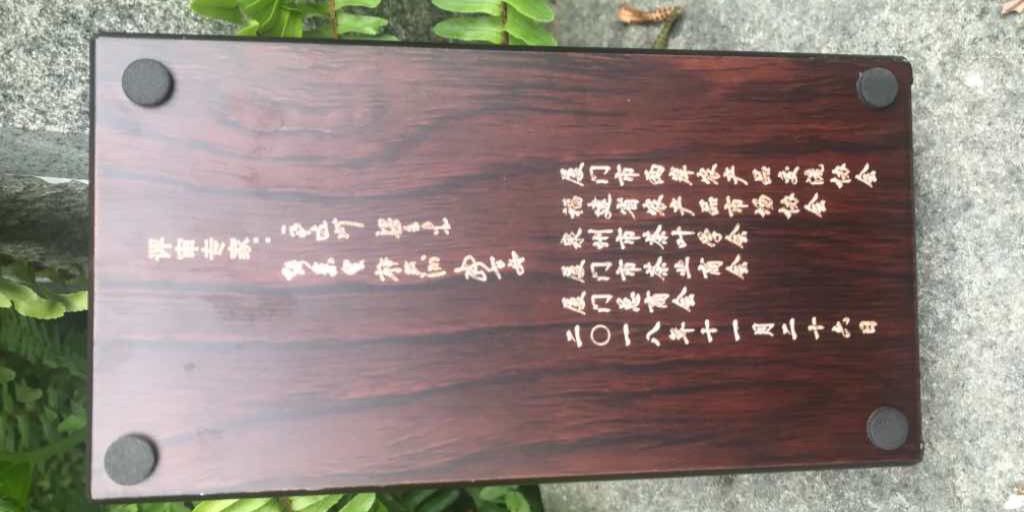 评审专家:
厦门市两岸农产品交流协会
福建省农产品市场协会
泉州市茶叶学会
厦门市茶业商会
厦门总商会
二〇一八年十一月二十六日